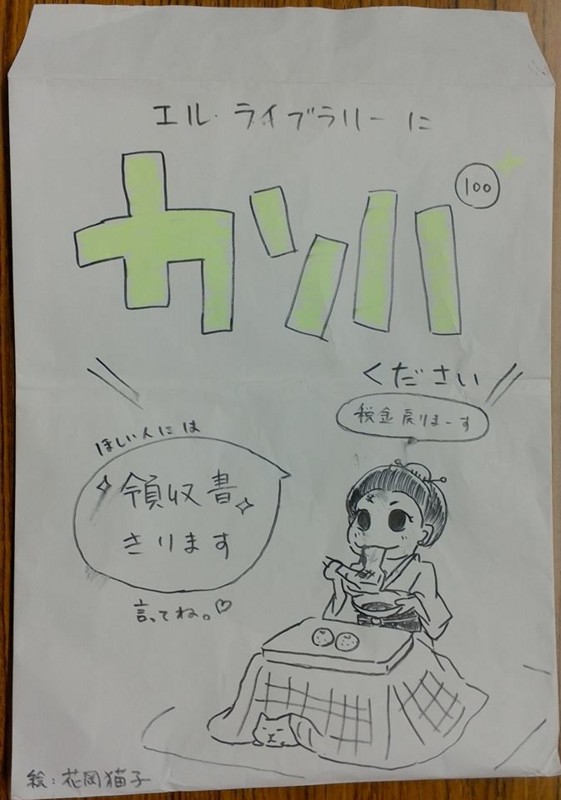 エル・ライブラリーに
カンパ
100
ください
税金戻りまーす
ほしい人には
領収書
きります
言ってね。♡
絵:花岡猫子